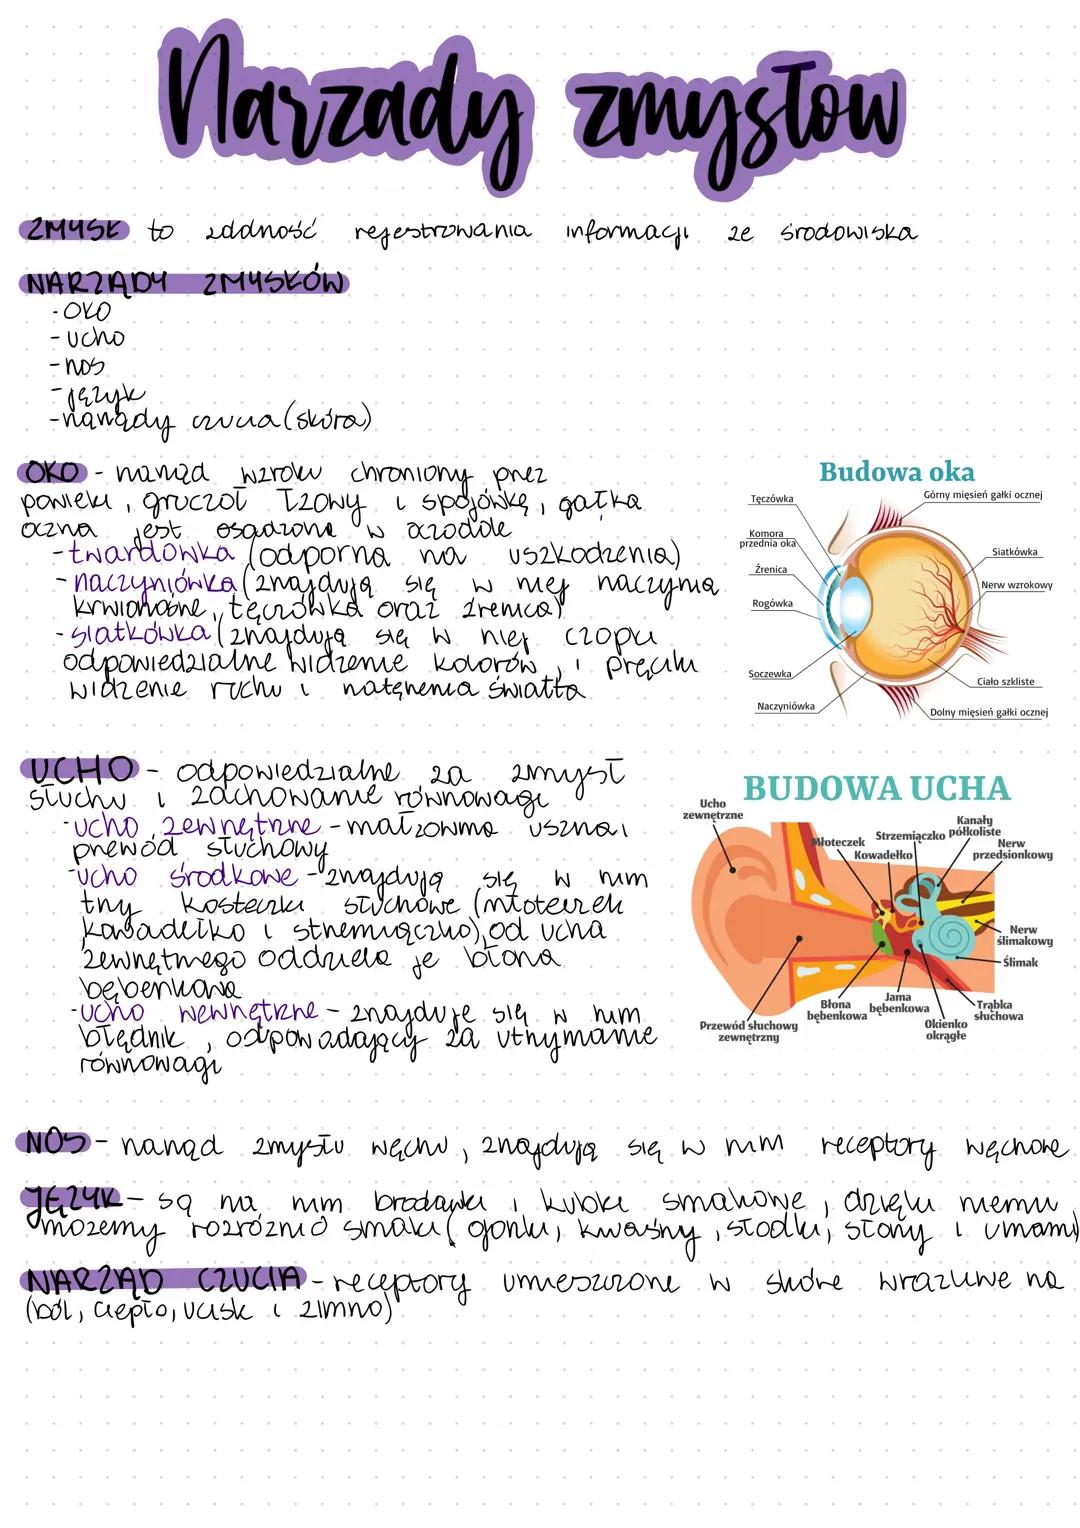 Narzady zmysłow
ZMYSŁ to zdolność rejestrowania informacji ze środowiska
NARZĄDY ZMYSŁÓW
- OKO
- ucho
- nos
- język
- narządy czucia (skóra)
OKO - narząd wzroku chroniony przez
powieki, gruczoł łzowy i spojówkę, gałka
oczna jest osadzona w oczodole
- twardówka (odporna na uszkodzenia)
- naczyniówka (znajdują się w niej naczynia
krwionośne, tęczówka oraz źrenica)
- siatkówka (znajdują się w niej czopki
odpowiedzialne widzenie kolorów, i pręciki
widzenie ruchu i natężenia światła
Budowa oka
Tęczówka
Górny mięsień gałki ocznej
Komora
przednia oka
Siatkówka
Źrenica
Nerw wzrokowy
Rogówka
Soczewka
Ciało szkliste
Naczyniówka
Dolny mięsień gałki ocznej
UCHO - odpowiedzialne za zmysł
słuchu i zachowanie równowagi
- ucho zewnętrzne - małżowina uszna i
przewód słuchowy
- ucho środkowe - znajdują się w nim
trzy kosteczki słuchowe (młoteczek
kowadełko i strzemiączko), od ucha
zewnętrznego oddziela je błona
bębenkowa
- ucho wewnętrzne - znajduje się w nim
błędnik, odpowiadający za utrzymanie
równowagi
BUDOWA UCHA
Ucho
zewnętrzne
Młoteczek
Kowadełko
Strzemiączko
Kanały
półkoliste
Nerw
przedsionkowy
Nerw
ślimakowy
Ślimak
Trąbka
słuchowa
Okienko
okrągłe
Jama
bębenkowa
Błona
bębenkowa
Przewód słuchowy
zewnętrzny
NOS - narząd zmysłu węchu, znajdują się w nim receptory węchowe
JĘZYK - są na nim brodawki i kubki smakowe, dzięki niemu
możemy rozróżnić smaki (gorzki, kwaśny, słodki, słony i umami)
NARZĄD CZUCIA - receptory umieszczone w skórze wrażliwe na
(ból, ciepło, ucisk i zimno)